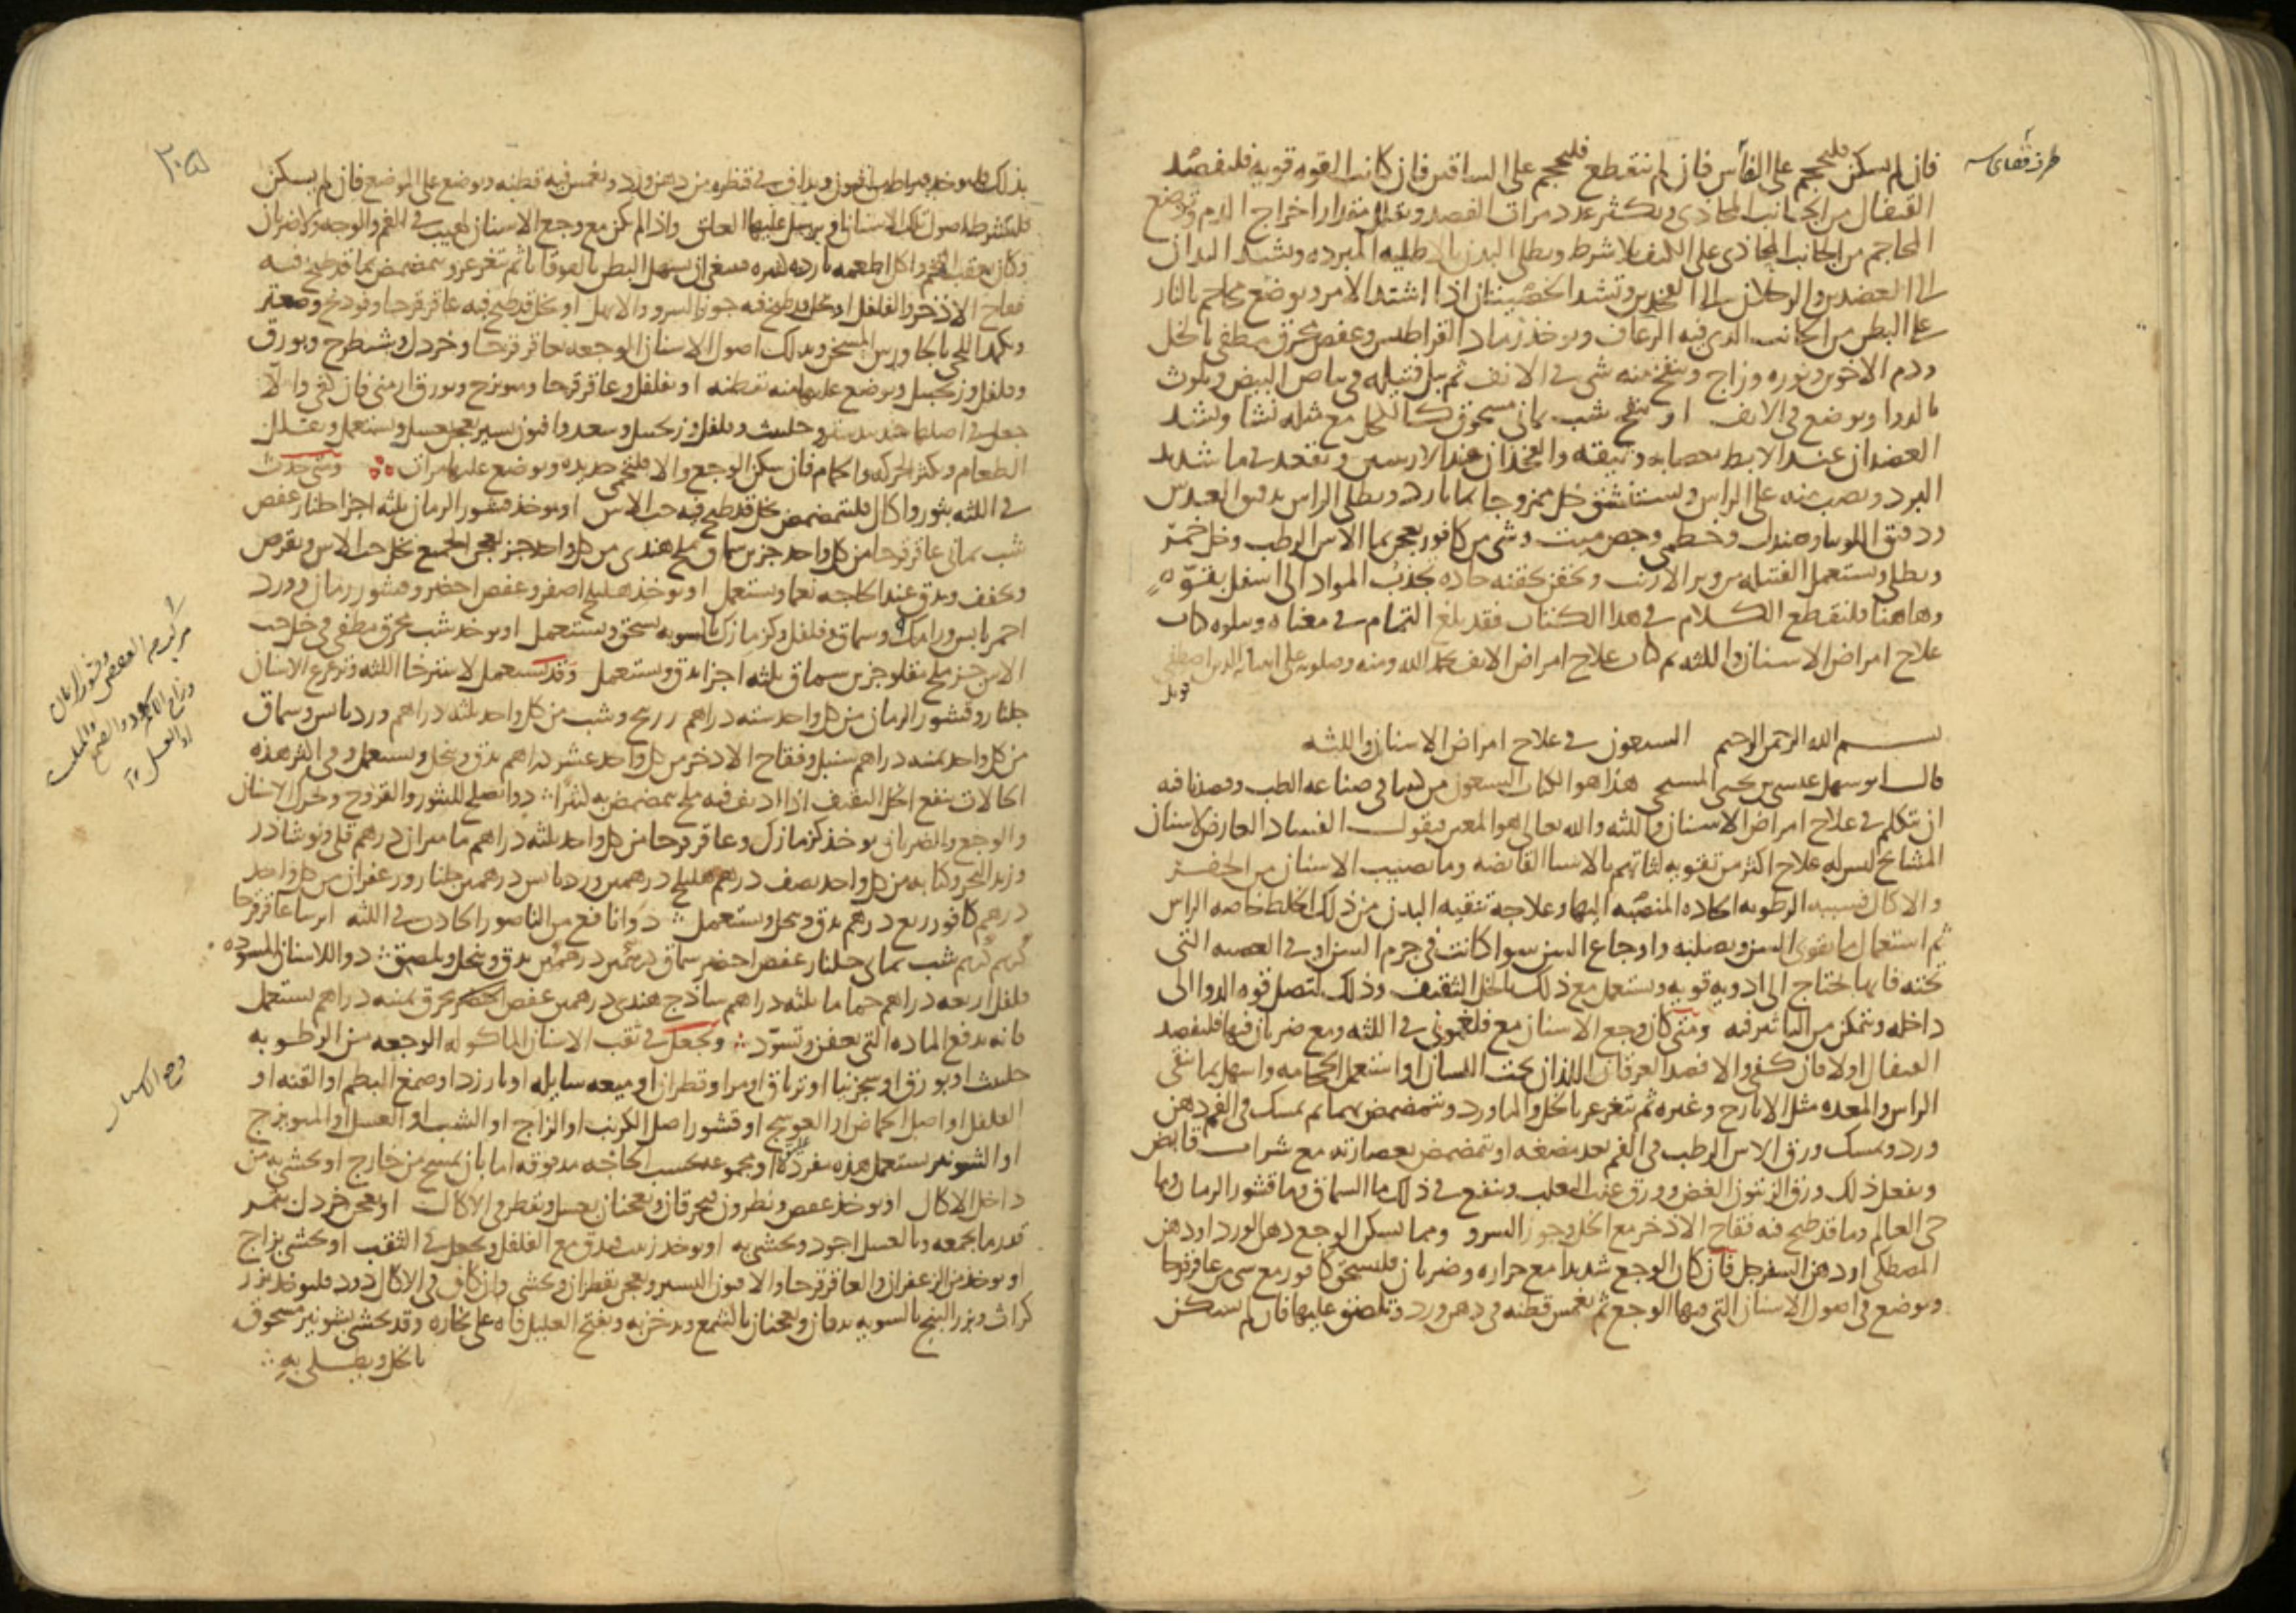 فان لم يسكن فليحجم على الفأس فان لم ينقطع فليحجم على الساقين فان كانت القوه قويه فليفصد
القيفال من الجانب المحاذى ويكثر عدد مرات الفصد ويقلل مقدار اخراج الدم وتوضع
المحاجم من الجانب المحاذى على الكتف بلا شرط ويطلى البدن بالاطليه المبرده وتشد اليدان
الى العضدين والرجلان الى الفخذين وتشد الخصيتان اذا اشتد الامر ويوضع محاجم بالنار
على البطن من الجانب الذى فيه الرعاف ويوخذ رماد القراطيس وعفص محرق مطفى بالخل
ودم الاخوين ونوره وزاج وينفخ منه شى فى الانف ثم يبل فتيله فى بياض البيض ويلوث
بالدوا ويوضع فى الانف او ينفخ شب يمانى مسحوق كالكحل مع مثله نشا وتشد
العضدان عند الابط بعصابه وثيقه والفخذان عند الاربيتين ويقعد فى ما شديد
البرد ويصب منه على الراس ويستنشق خل ممزوجا بما بارد ويطلى الراس بدقيق العدس
ودقيق اللوبيا وصندل وخطمى وجص ميت وشى من كافور يعجن بما الاس الرطب وخل خمر
ويطلى ويستعمل الفتيله من وبر الارنب ويحقن بحقنه حاده تجذب المواد الى اسفل بقوه
وهاهنا فلنقطع الكلام فى هذا الكتاب فقد بلغ التمام فى معناه ويتلوه كتاب
علاج امراض الاسنان واللثه تم كتاب علاج امراض الانف بحمد الله ومنه وصلوته على
قوبل
بسم الله الرحمن الرحيم السبعون فى علاج امراض الاسنان واللثه
قال ابو سهل عيسى بن يحيى المسيحى هذا هو الكتاب السبعون من كتبنا فى صناعه الطب وقصدنا فيه
ان نتكلم فى علاج امراض الاسنان واللثه والله تعالى هو المعين فنقول الفساد العارض لاسنان
المشايخ ليس له علاج اكثر من تقويه لثاتهم بالاشيا القابضه وما يصيب الاسنان من الحفر
والاكال فسببه الرطوبه الحاده المنصبه اليها وعلاجه تنقيه البدن من ذلك الخلط خاصه الراس
ثم استعمال ما يقوى السن ويصلبه واوجاع السن سوا كانت فى جرم السن او فى العصبه التى
تحته فانها تحتاج الى ادويه قويه ويستعمل مع ذلك بالخل الثقيف وذلك لتصل قوه الدوا الى
داخله وتتمكن من التاثير فيه ومتى كان وجع الاسنان مع فلغمونى فى اللثه ومع ضربان فيها فليفصد
القيفال اولا فان كفى والا فصد العرقان اللذان تحت اللسان او استعمل الحجامه واسهل بما ينقى
الراس والمعده مثل الايارج وغيره ثم يتغرغر بالخل والماورد ويتمضمض بهما ثم يمسك فى الفم دهن
ورد ويمسك ورق الاس الرطب فى الفم بعد مضغه او يتمضمض بعصارته مع شراب قابض
ويفعل ذلك ورق الزيتون الغض وورق عنب الثعلب وينفع فى ذلك ما السماق وما قشور الرمان وما
حى العالم وما قد طبخ فيه فقاح الاذخر مع الخل وجوز السرو ومما يسكن الوجع دهن الورد او دهن
المصطكى او دهن السفرجل فان كان الوجع شديدا مع حراره وضربان فليسحق كافور مع شى من عاقرقرحا
ويوضع فى اصول الاسنان التى فيها الوجع ثم يغمس قطنه فى دهن ورد وتلصق عليها فان لم يسكن
٢٠٥
بذلك فليوخذ قيراط افيون ويداف فى قطره من دهن ورد ويغمس فيه قطنه ويوضع على الموضع فان لم يسكن
فليشرط اصول تلك الاسنان او يرسل عليها العلق واذا لم يكن مع وجع الاسنان لهيب فى الفم والوجه ولا ضربان
وكان بعقب اكل اطعمه بارده فينبغى ان يسهل البطن بالقوقايا ثم يتغرغر ويتمضمض بما قد طبخ فيه
فقاح الاذخر والفلفل او بخل قد طبخ فيه جوز السرو والابهل او بخل قد طبخ فيه عاقرقرحا وفودنج وصعتر
ويكمد اللحى بالجاورس المسخن ويدلك اصول الاسنان الوجعه بعاقرقرحا وخردل وشيطرج وبورق
وفلفل وزنجبيل ويوضع عليها منه بقطنه او بفلفل وعاقرقرحا وميويزج وبورق ارمنى فان كفى والا
جعل فى اصلها جندبيدستر وحلتيت وفلفل وزنجبيل وسعد وافيون يسير يعجن بعسل ويستعمل ويقلل
الطعام ويكثر الحركه والحمام فان سكن الوجع والا فليحمى حديده ويوضع عليها مرات ومتى حدث
فى اللثه بثور واكال فليتمضمض بخل قد طبخ فيه حب الاس او يوخذ قشور الرمان ثلثه اجزا جلنار عفص
شب يمانى عاقرقرحا من كل واحد جزين سماق ملح هندى من كل واحد جز يعجن الجميع بخل حب الاس ويقرص
ويجفف ويدق عند الحاجه نعما ويستعمل او يوخذ هليلج اصفر وعفص اخضر وقشور رمان وورد
احمر يابس ورامك وسماق وفلفل وكزمازك بالسويه يسحق ويستعمل او يوخذ شب محرق مطفى فى خل حب
الاس جز ملح مقلو جز سماق ثلثه اجزا يدق ويستعمل وقد يستعمل لاسترخا اللثه وتزعزع الاسنان
جلنار وقشور الرمان من كل واحد سته دراهم زرنيخ وشب من كل واحد ثلثه دراهم ورد يابس وسماق
من كل واحد ثمنيه دراهم سنبل وفقاح الاذخر من كل واحد عشر دراهم يدق وينخل ويستعمل وفى اكثر هذه
الحالات ينفع الخل الثقيف اذا اديف فيه ملح يتمضمض به كثيرا دوا يصلح للبثور والقروح وتحرك الاسنان
والوجع والضربان يوخذ كزمازك وعاقرقرحا من كل واحد ثلثه دراهم ماميران درهم قلى ونوشادر
وزبد البحر وكبابه من كل واحد نصف درهم هليلج درهمين ورد يابس درهمين جلنار وزعفران من كل واحد
درهم كافور ربع درهم يدق وينخل ويستعمل دوا نافع من الناصور الحادث فى اللثه ايرسا عاقرقرحا
شب يمانى جلنار عفص اخضر سماق درهمين درهمين يدق وينخل ويلصق دوا للاسنان المسوده
فلفل اربعه دراهم حماما ثلثه دراهم ساذج هندى درهمين عفص اخضر محرق ثمنيه دراهم يستعمل
فانه يدفع الماده التى تعفن وتسود ويجعل فى ثقب الاسنان الماكوله الوجعه من الرطوبه
حلتيت او بورق او سجزنيا او ترياق او مر او قطران او ميعه سايله او بارزد او صمغ البطم او القنه او
الفلفل او اصل الحماض او العوسج او قشور اصل الكرنب او الزاج او الشب او العسل او الميويزج
او الشونيز يستعمل هذه مفرده او مجموعه بحسب الحاجه مدقوقه اما بان يمسح من خارج او يحشى به من
داخل الاكال او يوخذ عفص ونطرون فيحرقان ويعجنان بعسل ويقطر فى الاكال او يعجن خردل بتمر
بقدر ما يجمعه وبالعسل اجود ويحشى به او يوخذ زبيب فيدق مع الفلفل ويجعل فى الثقب او يحشى بزاج
او يوخذ من الزعفران والعاقرقرحا والافيون اليسير ويعجن بقطران ويحشى وان كان فى الاكال دود فليوخذ بزر
كراث وبزر البنج بالسويه يدقان ويعجنان بالشمع ويدخن به ويفتح العليل فاه على بخاره وقد يحشى بشونيز مسحوق
بالخل ويطلى به